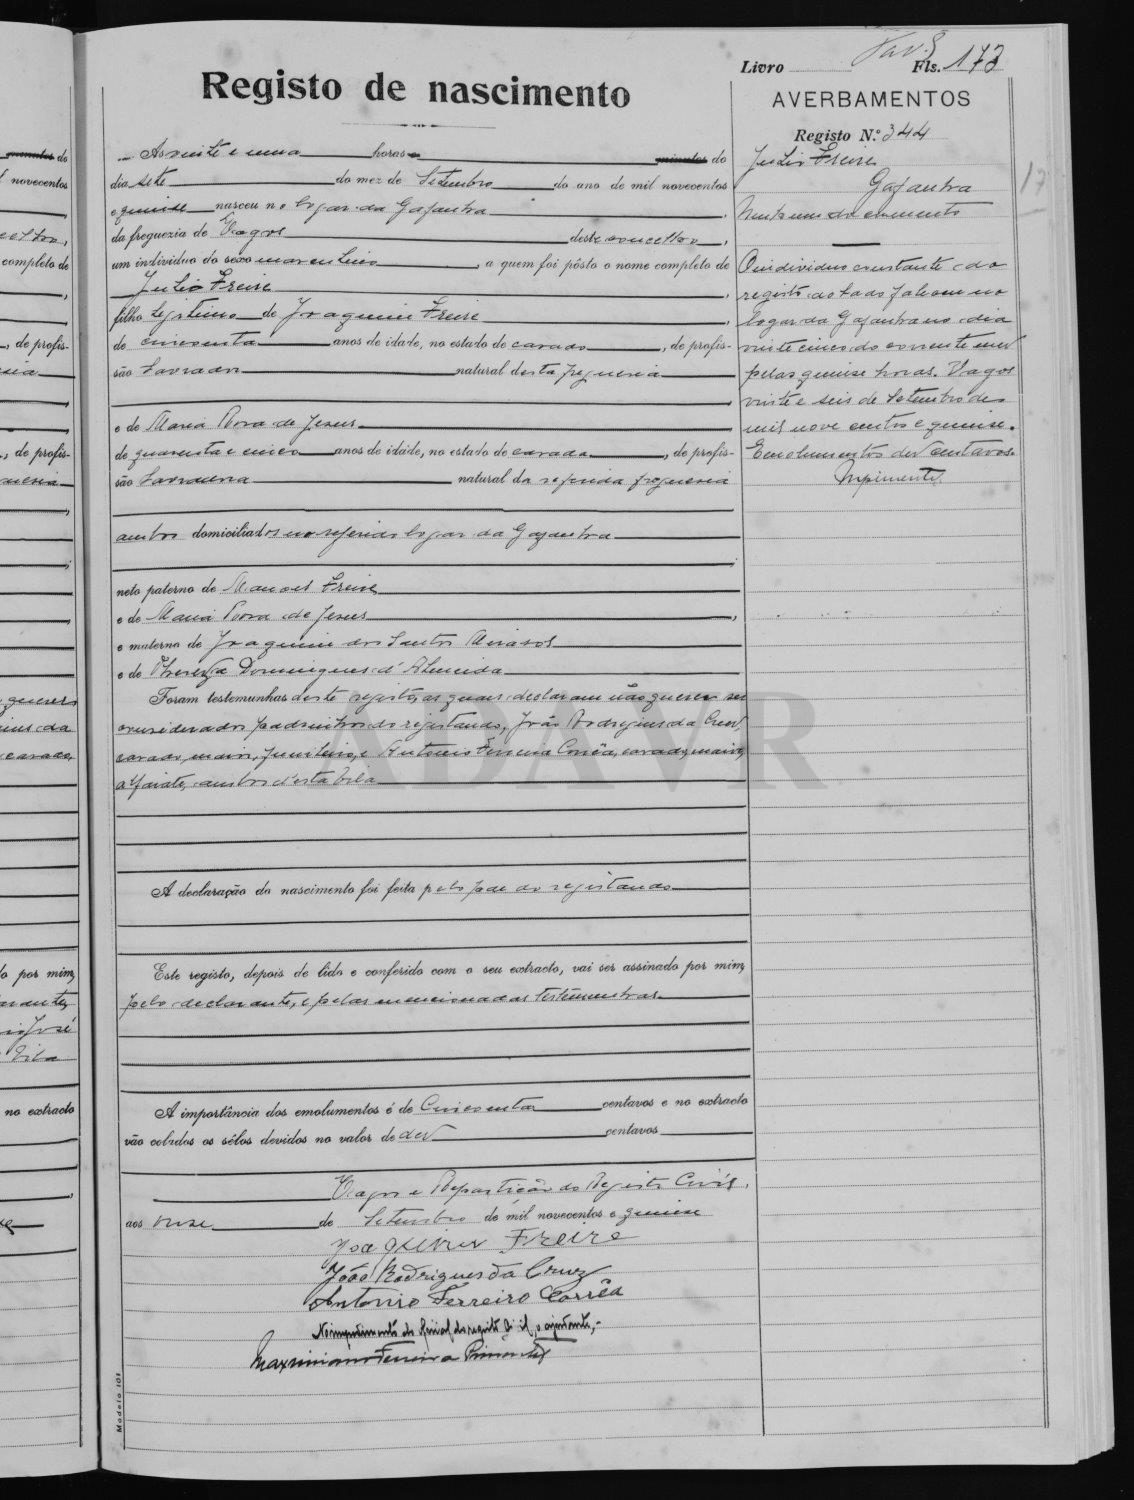 Livro Fls. 173
Registo de nascimento
AVERBAMENTOS
Registo N.º 344
As vinte e uma horas e minutos do
dia sete do mez de Setembro do ano de mil novecentos
e quinse nasceu no logar da Gafanha
da freguezia de Vagos deste concelho,
um individuo do sexo masculino, a quem foi pôsto o nome completo de
Julio Freire,
filho legitimo de Joaquim Freire,
de cincoenta anos de idade, no estado de casado, de profis-
são Lavrador natural desta freguesia
e de Maria Rosa de Jesus
de quarenta e cinco anos de idade, no estado de casada, de profis-
são Lavradora natural da referida freguesia
ambos domiciliados no referido logar da Gafanha
neto paterno de Manoel Freire
e de Maria Rosa de Jesus,
e materno de Joaquim dos Santos
e de Thereza Domingues d'Almeida
Foram testemunhas deste registo, as quaes declaram não querer ser
considerados padrinhos do registando, João Rodrigues da Cruz,
casado, maior, funileiro, e Antonio Ferreira Corrêa, casado, maior,
alfaiate, ambos d'esta vila
A declaração do nascimento foi feita pelo pae do registando
Este registo, depois de lido e conferido com o seu extracto, vai ser assinado por mim,
pelo declarante, e pelas mencionadas testemunhas.
A importância dos emolumentos é de Cincoenta centavos e no extracto
vão colados os sêlos devidos no valor de dez centavos
Vagos e Repartição do Registo Civil,
aos onze de Setembro de mil novecentos e quinse
Joaquim Freire
João Rodrigues da Cruz
Antonio Ferreira Corrêa
No impedimento do Oficial do registo Civil, o ajudante,
Maximiano Ferreira Pimentel
Modelo 101
Julio Freire
Gafanha
Nenhum documento
O individuo constante do
registo ao lado faleceu no
logar da Gafanha no dia
vinte cinco do corrente mez
pelas quinse horas. Vagos
vinte e seis de Setembro de
mil nove centos e quinse.
Emolumentos dez centavos.
MPimentel
ADAVR
minutos do
novecentos
concelho,
completo de
, de profis-
, de profis-
casado,
do por mim,
José
Vila
no extracto